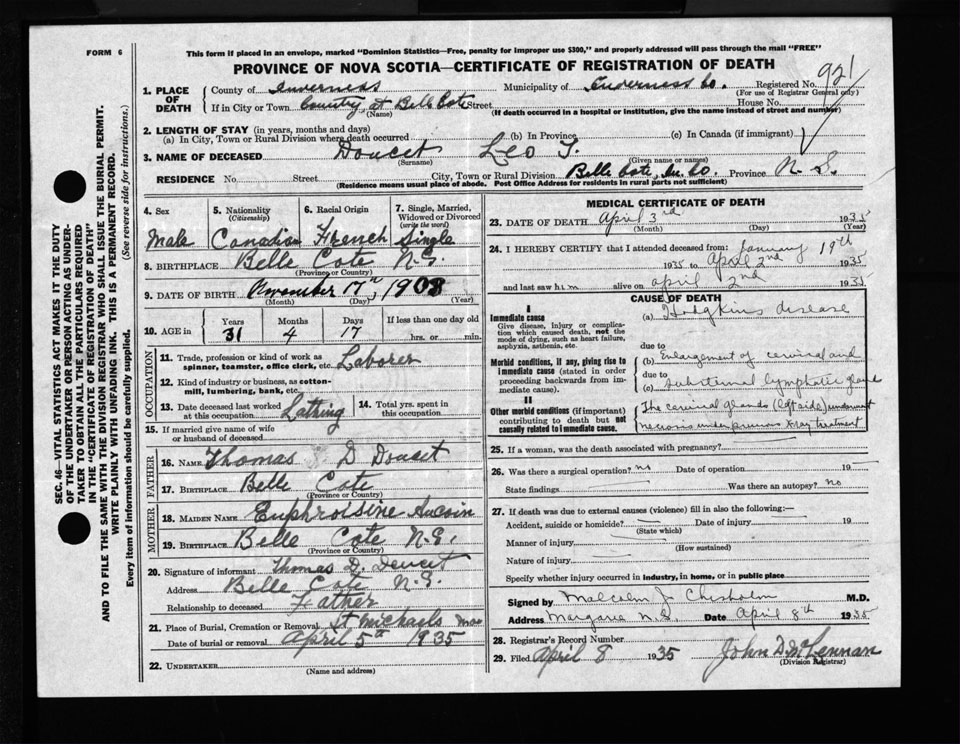 FORM 6
This form if placed in an envelope, marked "Dominion Statistics—Free, penalty for improper use $300," and properly addressed will pass through the mail "FREE"
PROVINCE OF NOVA SCOTIA—CERTIFICATE OF REGISTRATION OF DEATH
SEC. 46—VITAL STATISTICS ACT MAKES IT THE DUTY
OF THE UNDERTAKER OR PERSON ACTING AS UNDER-
TAKER TO OBTAIN ALL THE PARTICULARS REQUIRED
IN THE "CERTIFICATE OF REGISTRATION OF DEATH"
AND TO FILE THE SAME WITH THE DIVISION REGISTRAR WHO SHALL ISSUE THE BURIAL PERMIT.
WRITE PLAINLY WITH UNFADING INK. THIS IS A PERMANENT RECORD.
Every item of information should be carefully supplied. (See reverse side for instructions.)
1. PLACE OF DEATH
County of Inverness Municipality of Inverness Co. Registered No. 921
(For use of Registrar General only)
If in City or Town Country at Belle Cote Street House No.
(Name) (If death occurred in a hospital or institution, give the name instead of street and number)
2. LENGTH OF STAY (in years, months and days)
(a) In City, Town or Rural Division where death occurred (b) In Province (c) In Canada (if immigrant)
3. NAME OF DECEASED Doucet Leo T.
(Surname) (Given name or names)
RESIDENCE No. Street City, Town or Rural Division Belle Cote, In. Co. Province N. S.
(Residence means usual place of abode. Post Office Address for residents in rural parts not sufficient)
4. Sex Male
5. Nationality (Citizenship) Canadian
6. Racial Origin French
7. Single, Married, Widowed or Divorced (write the word) Single
8. BIRTHPLACE Belle Cote N.S.
(Province or Country)
9. DATE OF BIRTH November 17th, 1903
(Month) (Day) (Year)
10. AGE in Years Months Days If less than one day old
31 4 17 hrs. or min.
OCCUPATION
11. Trade, profession or kind of work as
spinner, teamster, office clerk, etc. Laborer
12. Kind of industry or business, as cotton-
mill, lumbering, bank, etc.
13. Date deceased last worked
at this occupation Lathing
14. Total yrs. spent in
this occupation
15. If married give name of wife
or husband of deceased
FATHER
16. NAME Thomas D Doucet
17. BIRTHPLACE Belle Cote
(Province or Country)
MOTHER
18. MAIDEN NAME Euphroisine AuCoin
19. BIRTHPLACE Belle Cote N.S.
(Province or Country)
20. Signature of informant Thomas D. Doucet
Address Belle Cote N.S.
Relationship to deceased Father
21. Place of Burial, Cremation or Removal St Michaels
Date of burial or removal April 5th 1935
22. UNDERTAKER
(Name and address)
MEDICAL CERTIFICATE OF DEATH
23. DATE OF DEATH April 3rd 1935
(Month) (Day) (Year)
24. I HEREBY CERTIFY that I attended deceased from: January 19th
1935 to April 2nd 1935
and last saw him alive on April 2nd 1935
CAUSE OF DEATH
I
Immediate cause
Give disease, injury or complica-
tion which caused death, not the
mode of dying, such as heart failure,
asphyxia, asthenia, etc.
(a) Hodgkins disease
due to
Morbid conditions, if any, giving rise to
immediate cause (stated in order
proceeding backwards from im-
mediate cause).
(b) Enlargement of cervical and
due to
(c) substernal lymphatic gland
II
Other morbid conditions (if important)
contributing to death but not
causally related to immediate cause.
The cervical glands (Left side) underwent
necrosis under previous Xray treatment
25. If a woman, was the death associated with pregnancy?
26. Was there a surgical operation? no Date of operation 19
State findings Was there an autopsy? no
27. If death was due to external causes (violence) fill in also the following:—
Accident, suicide or homicide? Date of injury 19
(State which)
Manner of injury
(How sustained)
Nature of injury
Specify whether injury occurred in industry, in home, or in public place
Signed by Malcolm J Chisholm M.D.
Address Margaree N.S. Date April 8th 1935
28. Registrar's Record Number
29. Filed April 8 1935 John D McLennan
(Division Registrar)